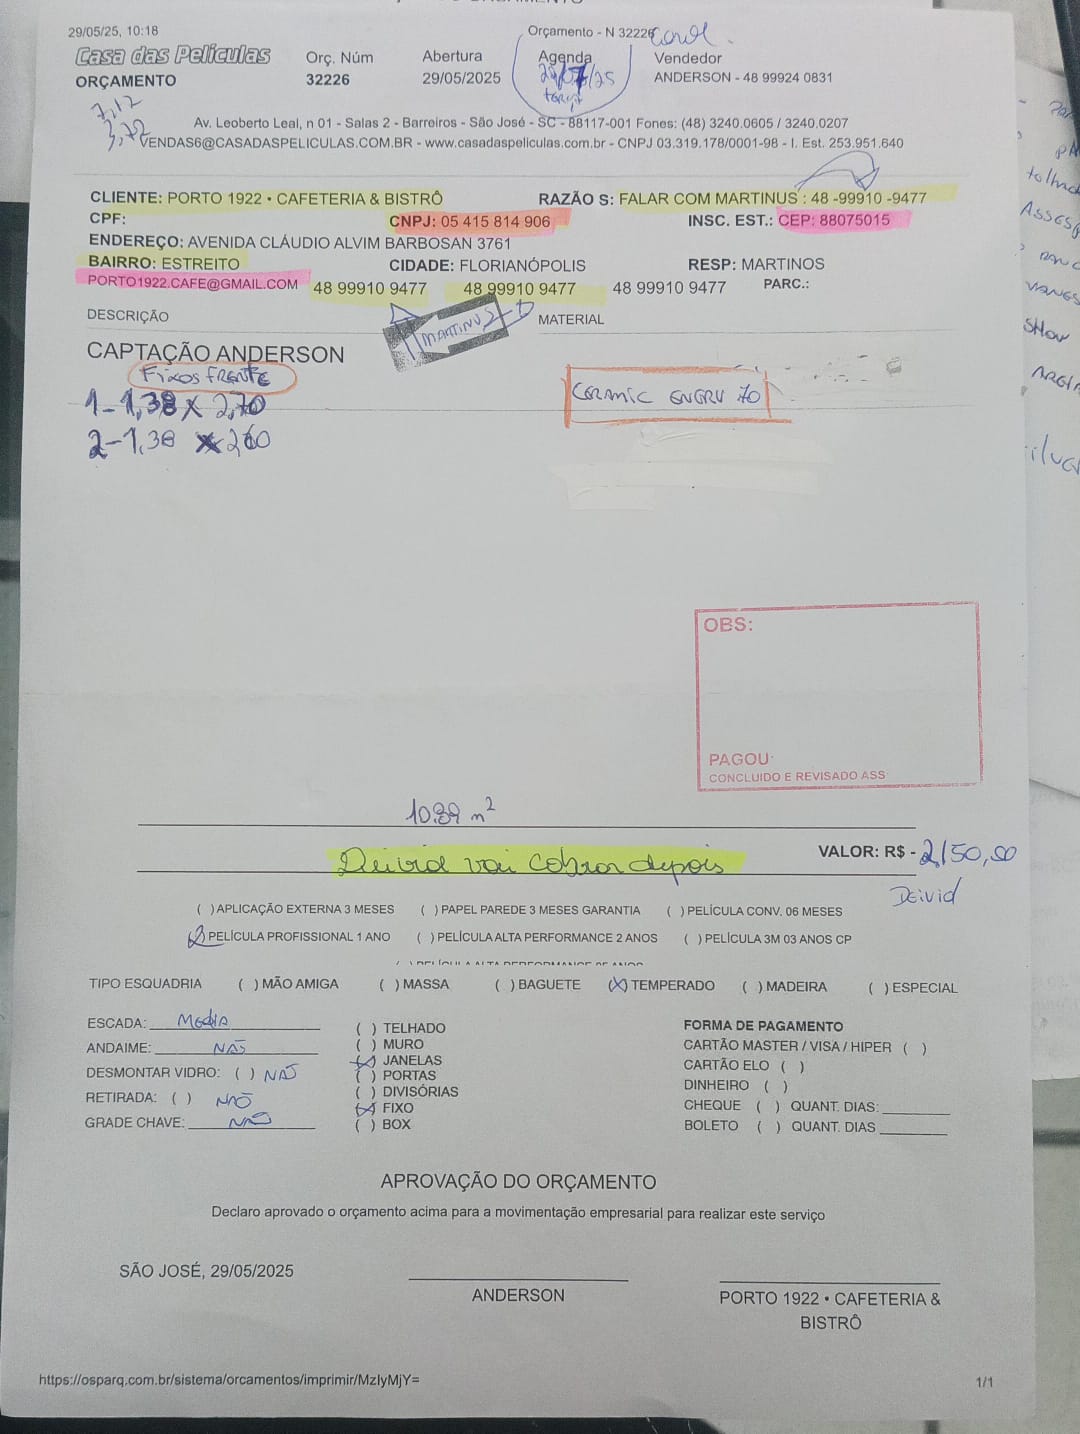 29/05/25, 10:18
Orçamento - N 32226
Casa das Películas
Orç. Núm
Abertura
Agenda
Vendedor
ORÇAMENTO
32226
29/05/2025
ANDERSON - 48 99924 0831
7,12
3,72
Av. Leoberto Leal, n 01 - Salas 2 - Barreiros - São José - SC - 88117-001 Fones: (48) 3240.0605 / 3240.0207
VENDAS6@CASADASPELICULAS.COM.BR - www.casadaspeliculas.com.br - CNPJ 03.319.178/0001-98 - I. Est. 253.951.640
CLIENTE: PORTO 1922 • CAFETERIA & BISTRÔ RAZÃO S: FALAR COM MARTINUS : 48 -99910 -9477
CPF: CNPJ: 05 415 814 906 INSC. EST.: CEP: 88075015
ENDEREÇO: AVENIDA CLÁUDIO ALVIM BARBOSAN 3761
BAIRRO: ESTREITO CIDADE: FLORIANÓPOLIS RESP: MARTINOS
PORTO1922.CAFE@GMAIL.COM 48 99910 9477 48 99910 9477 48 99910 9477 PARC.:
DESCRIÇÃO MATERIAL
MARTINUS
CAPTAÇÃO ANDERSON
FIXOS FRENTE
1-1,38 x 2,70 CERAMIC ENERV 70
2-1,38 x 2,60
OBS:
PAGOU:
CONCLUIDO E REVISADO ASS
10,89 m²
Deivid vai cobrar depois VALOR: R$ - 2,150,00
DEIVID
( )APLICAÇÃO EXTERNA 3 MESES ( )PAPEL PAREDE 3 MESES GARANTIA ( )PELÍCULA CONV. 06 MESES
(x)PELÍCULA PROFISSIONAL 1 ANO ( )PELÍCULA ALTA PERFORMANCE 2 ANOS ( )PELÍCULA 3M 03 ANOS CP
TIPO ESQUADRIA ( )MÃO AMIGA ( )MASSA ( )BAGUETE (X)TEMPERADO ( )MADEIRA ( )ESPECIAL
ESCADA: MEDIA
ANDAIME: NÃO
DESMONTAR VIDRO: ( ) NÃO
RETIRADA: ( ) NÃO
GRADE CHAVE: NÃO
( ) TELHADO
( ) MURO
(x) JANELAS
( ) PORTAS
( ) DIVISÓRIAS
(x) FIXO
( ) BOX
FORMA DE PAGAMENTO
CARTÃO MASTER / VISA / HIPER ( )
CARTÃO ELO ( )
DINHEIRO ( )
CHEQUE ( ) QUANT. DIAS:
BOLETO ( ) QUANT. DIAS
APROVAÇÃO DO ORÇAMENTO
Declaro aprovado o orçamento acima para a movimentação empresarial para realizar este serviço
SÃO JOSÉ, 29/05/2025
ANDERSON
PORTO 1922 • CAFETERIA &
BISTRÔ
https://osparq.com.br/sistema/orcamentos/imprimir/MzIyMjY= 1/1